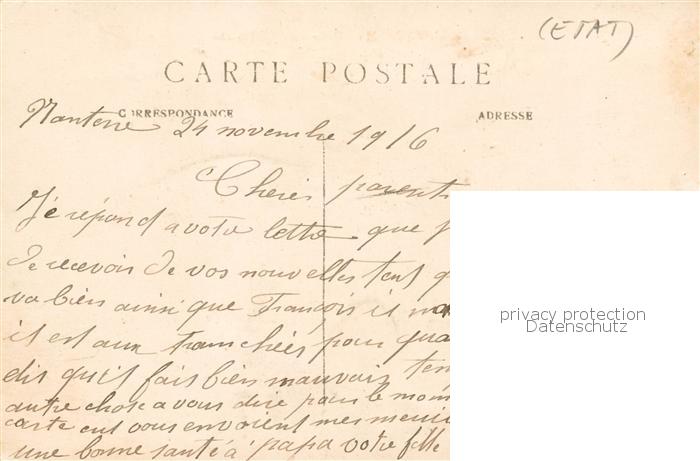 (ETAT)
CARTE POSTALE
CORRESPONDANCE ADRESSE
Nanterre 24 novembre 1916
Cheres parents
Je répond a votre lettre que j
de recevoir de vos nouvelles tant q
va bien ainsi que François il m
il est aux tranchées pour qua
dis qu'il fais bien mauvais tem
autre chose a vous dire pour le mom
carte en vous envoient mes meill
une bonne santé a papa votre fille
privacy protection
Datenschutz